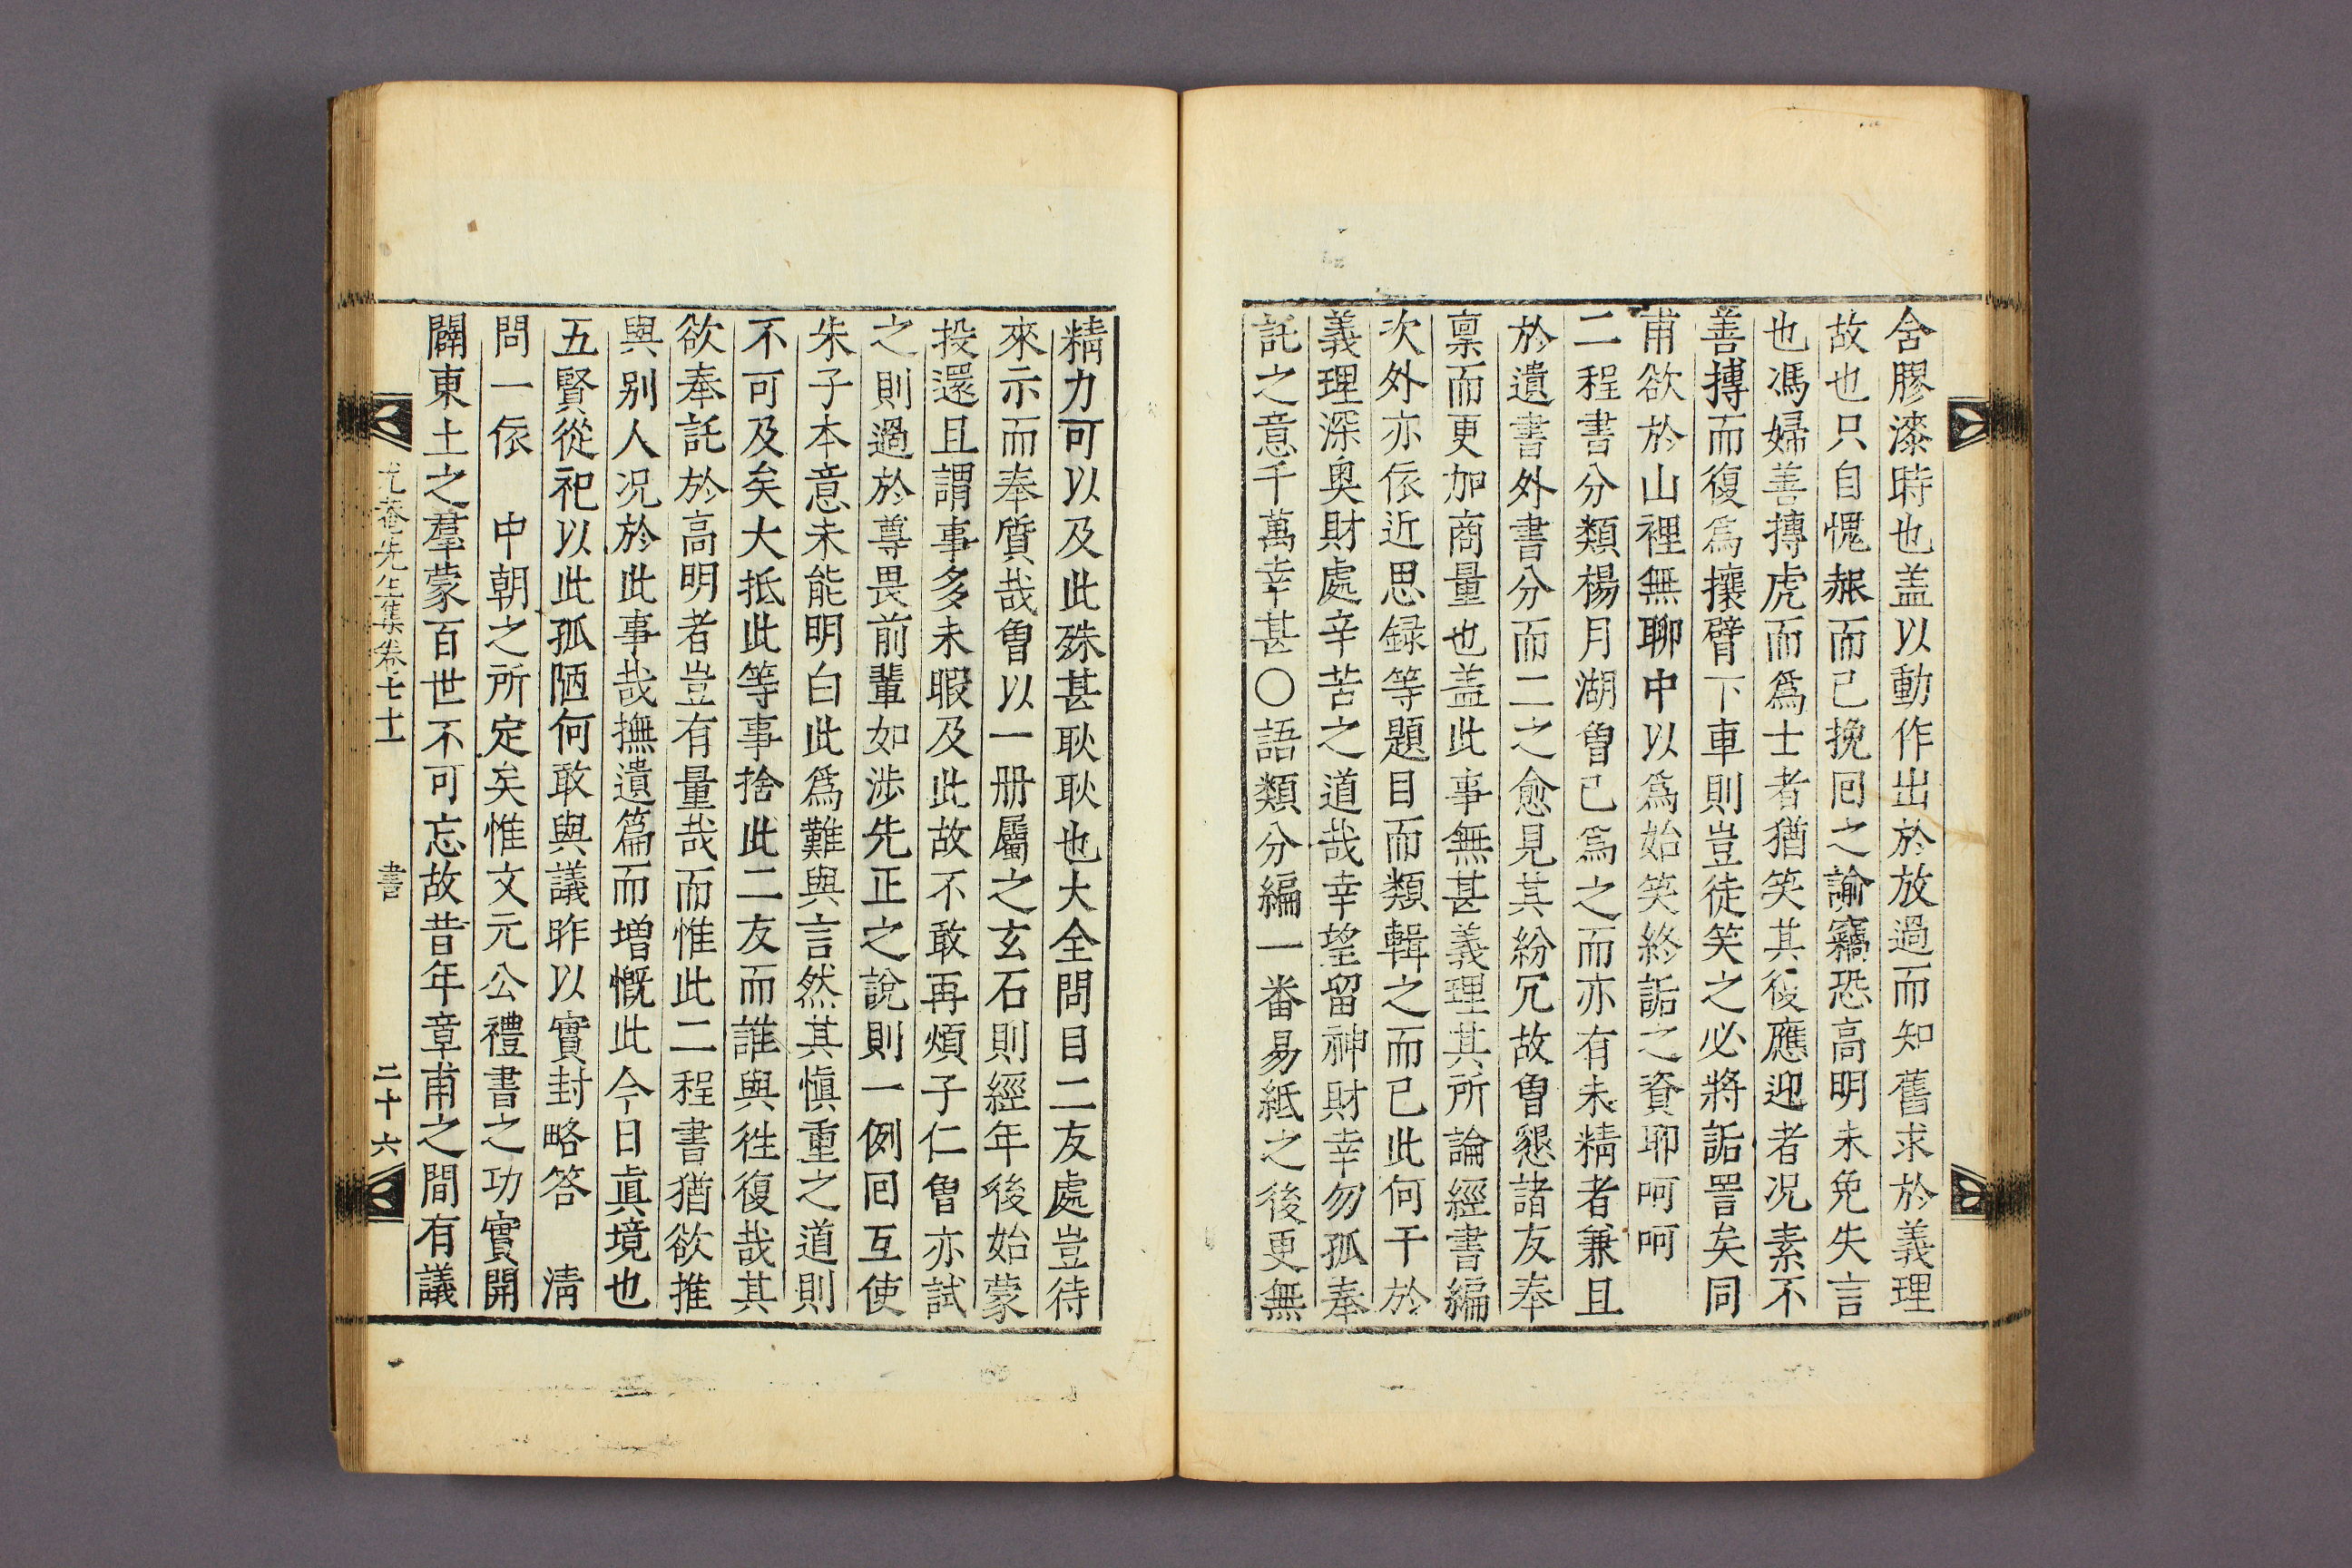 舍膠漆時也盖以動作出於放過而知舊求於義理
故也只自愧赧而已挽回之諭竊恐高明未免失言
也馮婦善搏虎而爲士者猶笑其後應迎者况素不
善搏而復爲攘臂下車則豈徒笑之必將詬詈矣同
甫欲於山裡無聊中以爲始笑終詬之資耶呵呵
二程書分類楊月湖曾已爲之而亦有未精者兼且
於遺書外書分而二之愈見其紛冗故曾懇諸友奉
稟而更加商量也盖此事無甚義理其所論經書編
次外亦依近思録等題目而類輯之而已此何干於
義理深奥財處辛苦之道哉幸望留神財幸勿孤奉
託之意千萬幸甚○語類分編一番易紙之後更無
精力可以及此殊甚耿耿也大全問目二友處豈待
來示而奉質哉曾以一册屬之玄石則經年後始蒙
投還且謂事多未暇及此故不敢再煩子仁曾亦試
之則過於尊畏前輩如涉先正之說則一例回互使
朱子本意未能明白此爲難與言然其愼重之道則
不可及矣大抵此等事捨此二友而誰與徃復哉其
欲奉託於高明者豈有量哉而惟此二程書猶欲推
與别人况於此事哉撫遺篇而增慨此今日眞境也
五賢從祀以此孤陋何敢與議昨以實封略答　淸
問一依　中朝之所定矣惟文元公禮書之功實開
闢東土之羣蒙百世不可忘故昔年章甫之間有議
尤菴先生集卷七十一　書　二十六